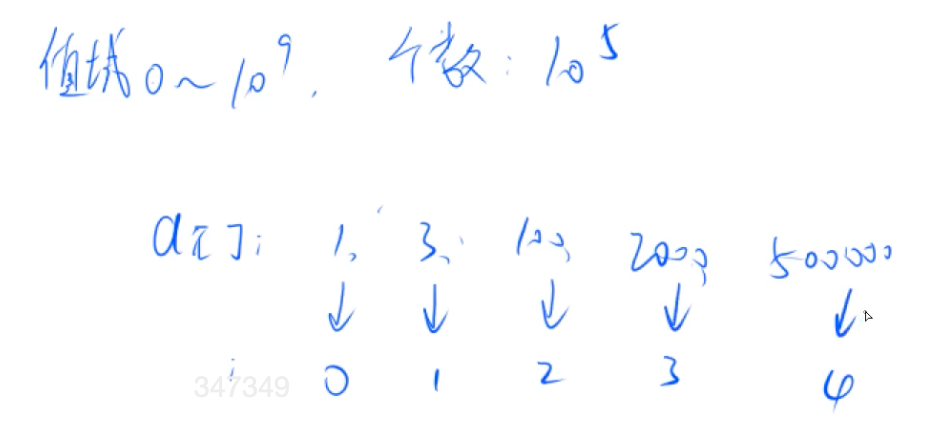 值域 0~10⁹. 个数: 10⁵
a[]: 1, 3, 100, 2000, 500000
↓ ↓ ↓ ↓ ↓
i 0 1 2 3 4
347349